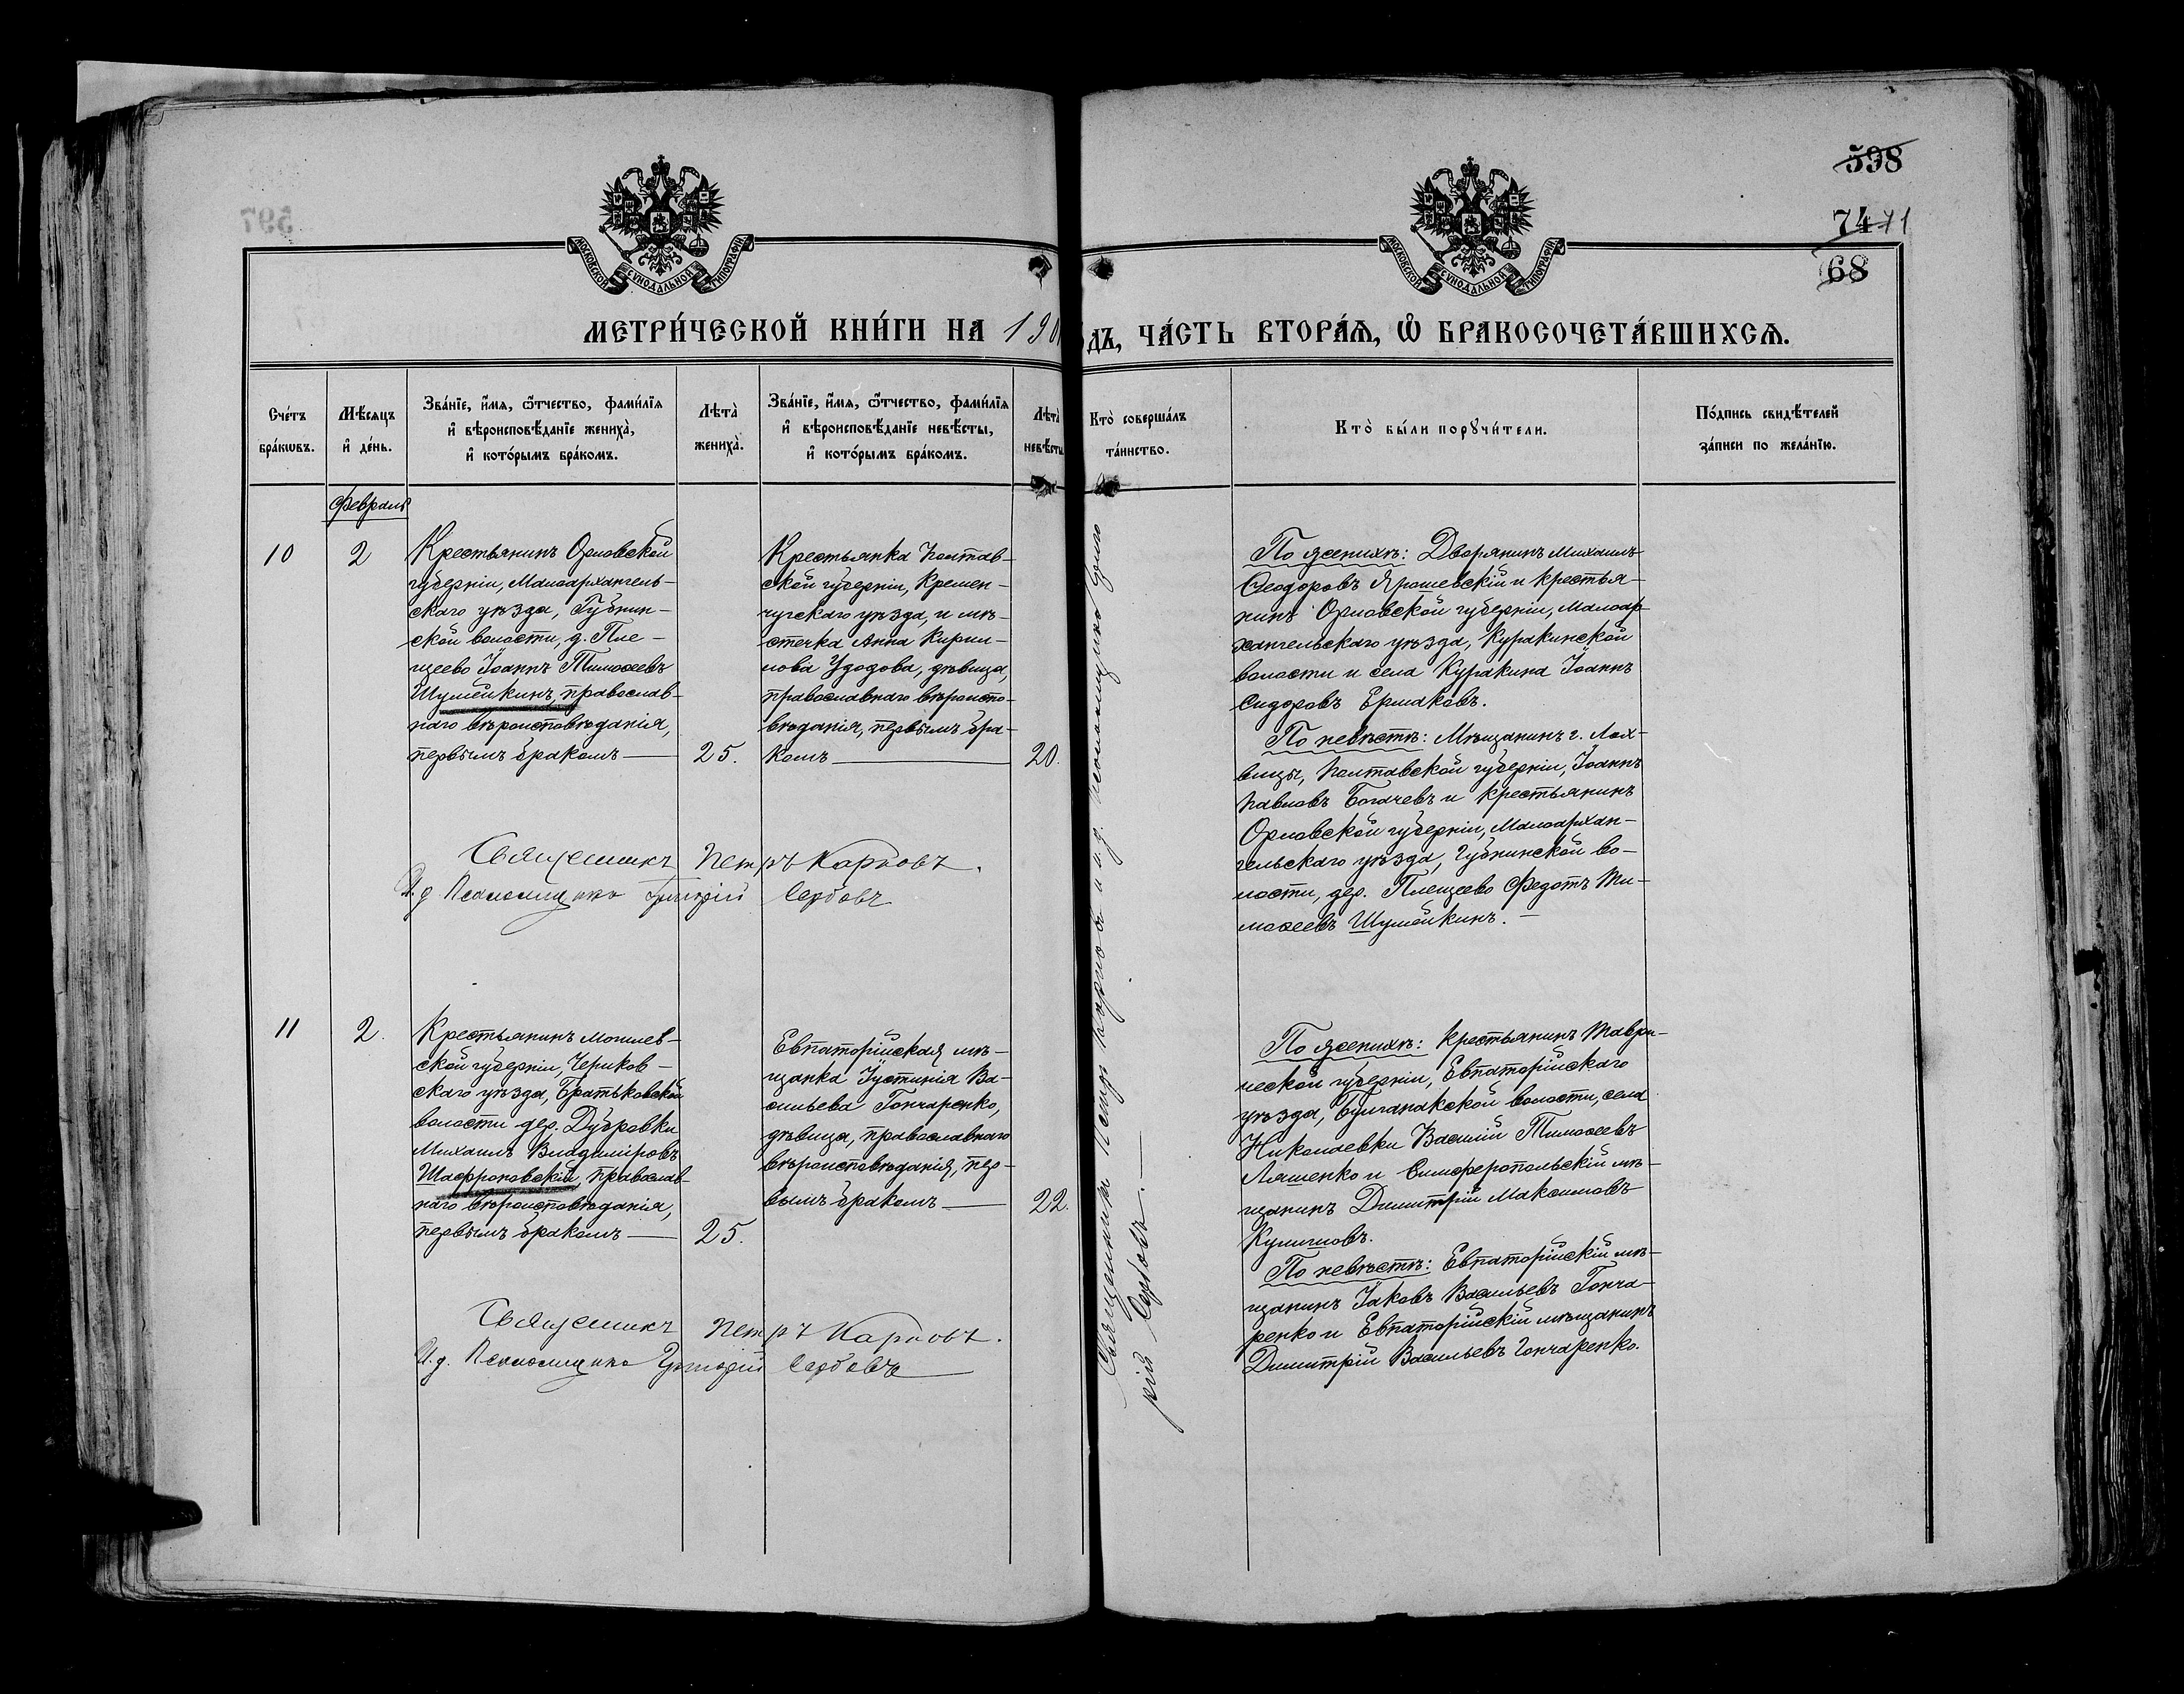 598
74 71
68
МОСКОВСКОЙ СѴНОДАЛЬНОЙ ТИПОГРАФІИ
МОСКОВСКОЙ СѴНОДАЛЬНОЙ ТИПОГРАФІИ
МЕТРИ́ЧЕСКОЙ КНИ́ГИ НА 190
дъ, ЧА́СТЬ ВТОРА́Ѧ, Ѽ БРАКОСОЧЕТА́ВШИХСѦ.
Сче́тъ
бра́кѡвъ.
Мѣ́сяцъ
и҆ де́нь.
Зва́нїе, и҆́мѧ, ѻ҆́тчество, фами́лїѧ
и҆ вѣроисповѣ́данїе жениха̀,
и҆ кото́рымъ бра́комъ.
Лѣта̀
жениха̀.
Зва́нїе, и҆́мѧ, ѻ҆́тчество, фами́лїѧ
и҆ вѣроисповѣ́данїе невѣ́сты,
и҆ кото́рымъ бра́комъ.
Лѣта̀
невѣ́сты
Кто̀ соверша́лъ
та́инство.
Кто̀ бы́ли порꙋчи́тели.
По́дпись свидѣ́телей
за́писи по жела́нїю.
Февраль
10
2
Крестьянинъ Орловской
губерніи, Малоархангель-
скаго уѣзда, Губкин-
ской волости, д. Пле-
щеево Іоаннъ Тимоѳеевъ
Шумейкинъ, православ-
наго вѣроисповѣданія,
первымъ бракомъ —
25.
Крестьянка Полтав-
ской губерніи, Кремен-
чугскаго уѣзда, и мѣ-
стечка Анна Кирил-
лова Удодова, дѣвица,
православнаго вѣроиспо-
вѣданія, первымъ бра-
комъ —
20.
По женихѣ: Дворянинъ Михаилъ
Ѳеодоровъ Ярошевскій и крестья-
нинъ Орловской губерніи, Малоар-
хангельскаго уѣзда, Куракинской
волости и села Куракина Іоаннъ
Сидоровъ Ермаковъ.
По невѣстѣ: Мѣщанинъ г. Лох-
вицы, Полтавской губерніи, Іоаннъ
Павловъ Богачевъ и крестьянинъ
Орловской губерніи, Малоархан-
гельскаго уѣзда, Губкинской во-
лости, дер. Плещеево Федотъ Ти-
моѳеевъ Шумейкинъ. —
Священникъ Петръ Карповъ.
И. д. Псаломщика Григорій Сербовъ
11
2.
Крестьянинъ Могилев-
ской губерніи, Чериков-
скаго уѣзда, Братьковской
волости дер. Дубровки
Михаилъ Владиміровъ
Шафроновскій, православ-
наго вѣроисповѣданія,
первымъ бракомъ —
25.
Евпаторійская мѣ-
щанка Іустинія Ва-
сильева Гончаренко,
дѣвица, православнаго
вѣроисповѣданія, пер-
вымъ бракомъ —
22.
Священникъ Петръ Карповъ и и. д. псаломщика Григо
рій Сербовъ. —
По женихѣ: крестьянинъ Таври-
ческой губерніи, Евпаторійскаго
уѣзда, Булганакской волости, села
Николаевки Василій Тимоѳеевъ
Ляшенко и Симферопольскій мѣ-
щанинъ Димитрій Максимовъ
По невѣстѣ: Евпаторійскій мѣ-
щанинъ Іаковъ Васильевъ Гонча-
ренко и Евпаторійскій мѣщанинъ
Димитрій Васильевъ Гончаренко.
Священникъ Петръ Карповъ.
И. д. Псаломщика Григорій Сербовъ